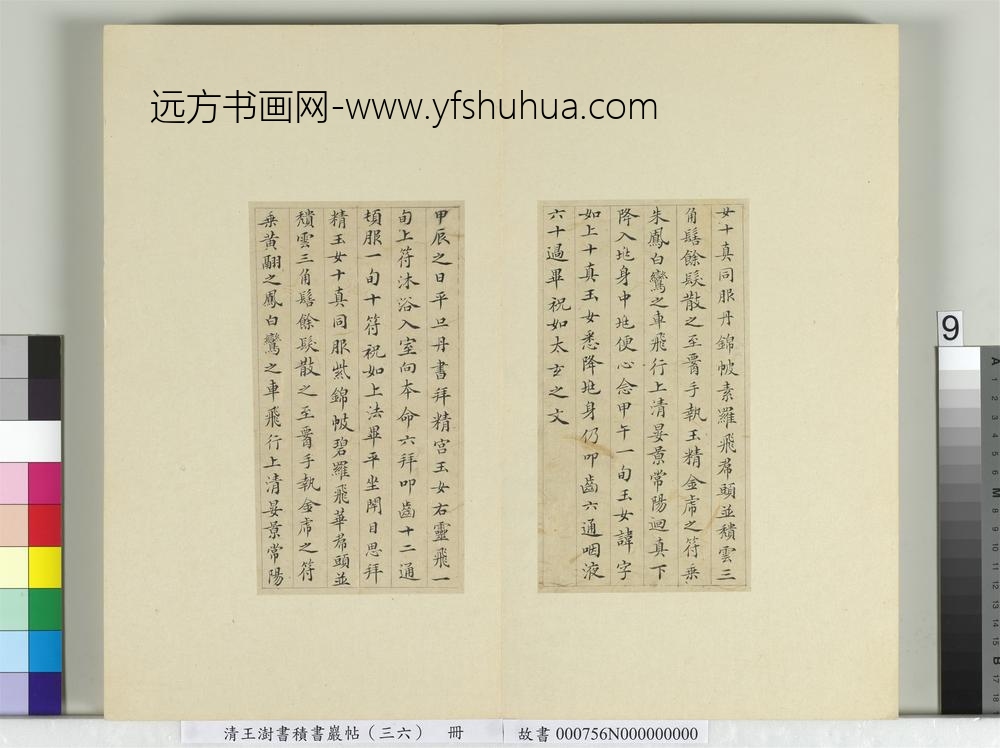 远方书画网-www.yfshuhua.com
女十真同服丹錦帔素羅飛帬頭並穨雲三
角髻餘髮散之至𦝫手執玉精金虎之符乗
朱鳳白鸞之車飛行上清晏景常陽迴真下
降入兆身中兆便心念甲午一旬玉女諱字
如上十真玉女悉降兆身仍叩齒六通咽液
六十過畢祝如太玄之文
甲辰之日平旦丹書拜精宫玉女右靈飛一
旬上符沐浴入室向本命六拜叩齒十二通
頓服一旬十符祝如上法畢平坐閇目思拜
精玉女十真同服紫錦帔碧羅飛華帬頭並
穨雲三角髻餘髮散之至𦝫手執金虎之符
乗黄翮之鳳白鸞之車飛行上清晏景常陽
9
清王澍書積書巖帖（三六） 冊
故書 000756N000000000